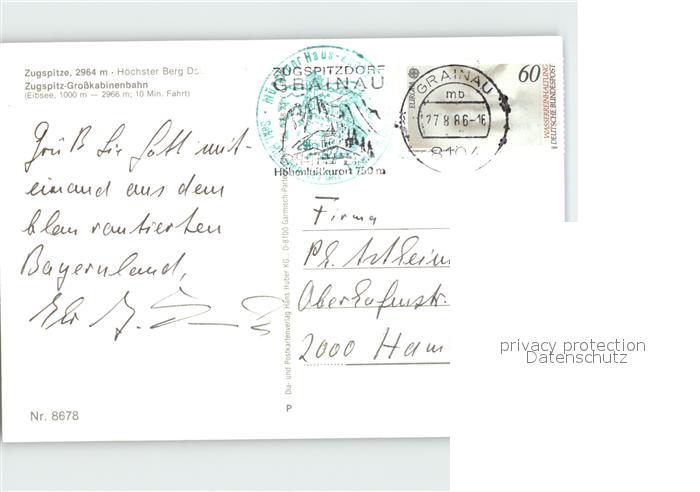 Zugspitze, 2964 m · Höchster Berg De
Zugspitz-Großkabinenbahn
(Eibsee, 1000 m — 2966 m; 10 Min. Fahrt)
ZUGSPITZDORF
GRAINAU
Höhenluftkurort 750 m
GRAINAU
mb
27.8.86-16
8104
EUROPA
60
WASSERREINHALTUNG
DEUTSCHE BUNDESPOST
Grüß Sie Gott mit-
einand aus dem
blau rautierten
Bayernland,
Firma
Ph.
2000 Ham
Dia- und Postkartenverlag Hans Huber KG · D-8100 Garmisch-Parten
P
Nr. 8678
privacy protection
Datenschutz